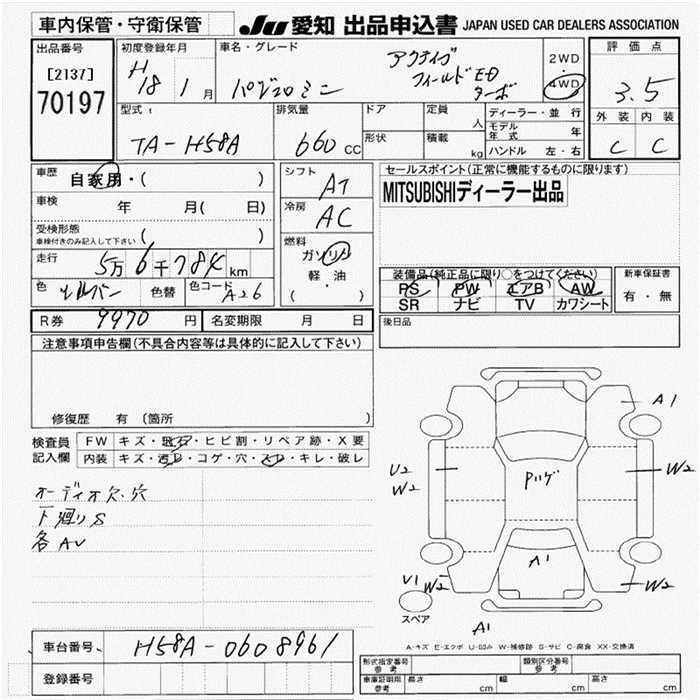 車内保管・守衛保管
JU 愛知 出品申込書 JAPAN USED CAR DEALERS ASSOCIATION
出品番号
[2137]
70197
初度登録年月
H18 1 月
車名・グレード
パジェロミニ
アクティブ
フィールドED
ターボ
2WD
・
4WD
評価点
3.5
外装 内装
C C
型式
TA-H58A
排気量
660 CC
ドア
形状
定員
人
積載
kg
ディーラー・並行
モデル年式 年
ハンドル 左・右
車歴
自家用・( )
車検
年 月( 日)
受検形態
車検付きのみ記入して下さい ( )
走行
5万6千784km
色 シルバー 色替 色コード A26
シフト
AT
冷房
AC
燃料
ガソリン
軽・油
( ・ )
セールスポイント(正常に機能するものに限ります)
MITSUBISHIディーラー出品
装備品(純正品に限り○をつけてください)
PS PW エアB AW
SR ナビ TV カワシート
新車保証書
有・無
R券 9970 円 名変期限 月 日
後日品
注意事項申告欄(不具合内容等は具体的に記入して下さい)
修復歴 有 (箇所 )
検査員
記入欄
FW キズ・飛石・ヒビ割・リペア跡・X要
内装 キズ・汚レ・コゲ・穴・スレ・キレ・破レ
オーディオ欠・穴
下廻りS
各AU
A1
U2
W2
W2
A1
U1
W2
W2
スペア
A1
A-キズ E-エクボ U-凹み W-補修跡 S-サビ C-腐食 XX-交換済
車台番号 H58A-0608961
登録番号
形式指定番号
参考
類別区分番号
参考
車庫証明用
参考
長さ cm
幅 cm
高さ cm